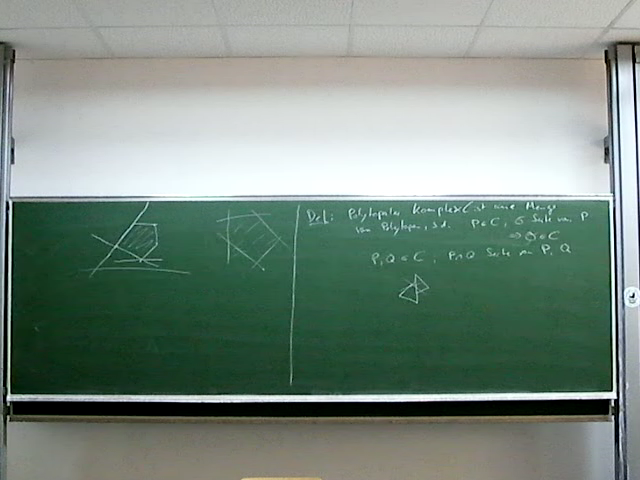 Def: Polytopaler Komplex C ist eine Menge
von Polytopen, s.d. P ∈ C, G Seite von P
⇒ G ∈ C
P, Q ∈ C, P ∩ Q Seite von P, Q